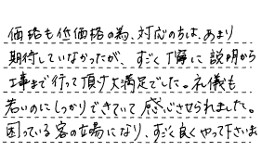 価格も低価格の為、対応の方は、あまり
期待していなかったが、すごく丁寧に説明から
工事まで行って頂け大満足でした。礼儀も
若いのにしっかりできていて感心させられました。
困っている客の立場になり、すごく良くやって下さいま